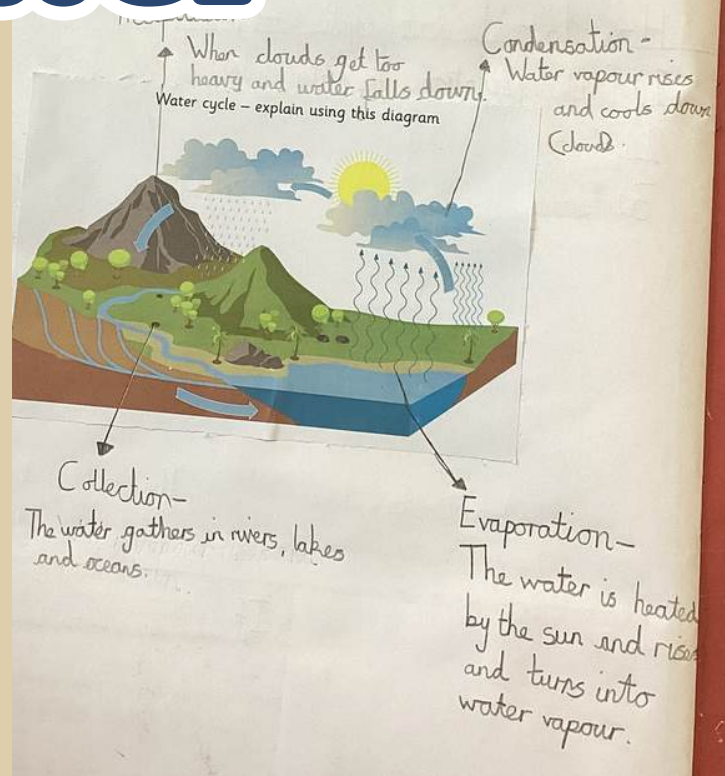 When clouds get too
heavy and water falls down.
Condensation -
Water vapour rises
and cools down
(clouds.
Water cycle – explain using this diagram
Collection-
The water gathers in rivers, lakes
and oceans.
Evaporation-
The water is heated
by the sun and rises
and turns into
water vapour.